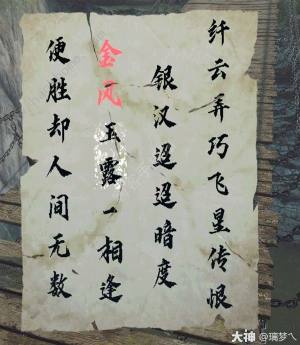 纤云弄巧飞星传恨
银汉迢迢暗度
金风玉露一相逢
便胜却人间无数
大神 @璃梦へ